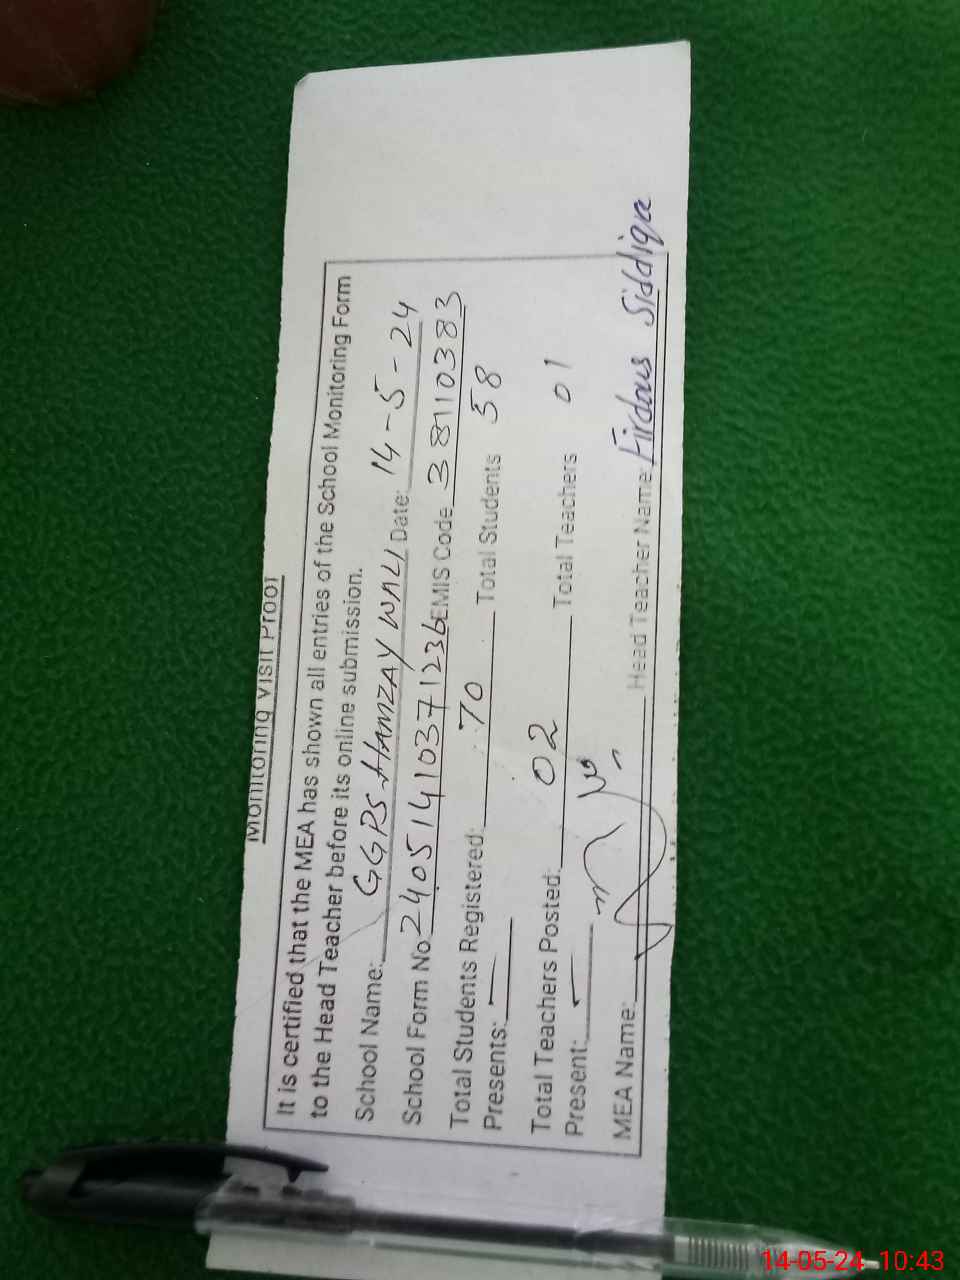 Monitoring Visit Proof
It is certified that the MEA has shown all entries of the School Monitoring Form
to the Head Teacher before its online submission.
School Name: GGPS HAMZAY WALI Date: 14-5-24
School Form No 24051410371236 EMIS Code 38110383
Total Students Registered: 70 Total Students 58
Presents:
Total Teachers Posted: 02 Total Teachers 01
Present:
MEA Name: Head Teacher Name: Firdous Siddiqa
14-05-24 10:43